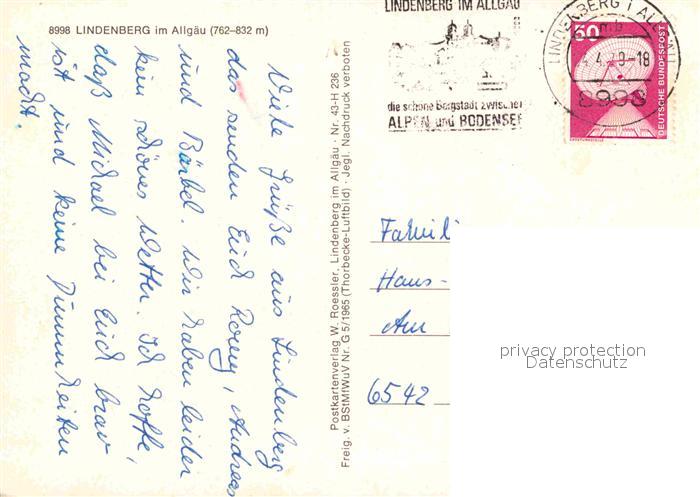 8998 LINDENBERG im Allgäu (762–832 m)
Viele Grüße aus Lindenberg
das senden Euch Romy, Andreas
und Bärbel. Wir haben leider
kein schönes Wetter. Ich hoffe,
daß Michael bei Euch brav
ist und keine Dummheiten
macht.
Postkartenverlag W. Roessler, Lindenberg im Allgäu · Nr. 43-H 236
Freig. v. BStMfWuV Nr. G 5/1965 (Thorbecke-Luftbild) · Jegl. Nachdruck verboten
LINDENBERG IM ALLGÄU
die schöne Bergstadt zwischen
ALPEN und BODENSEE
LINDENBERG I ALLGÄU
mb
-18
8998
50
DEUTSCHE BUNDESPOST
Famili
Hans-
Am
6542
privacy protection
Datenschutz